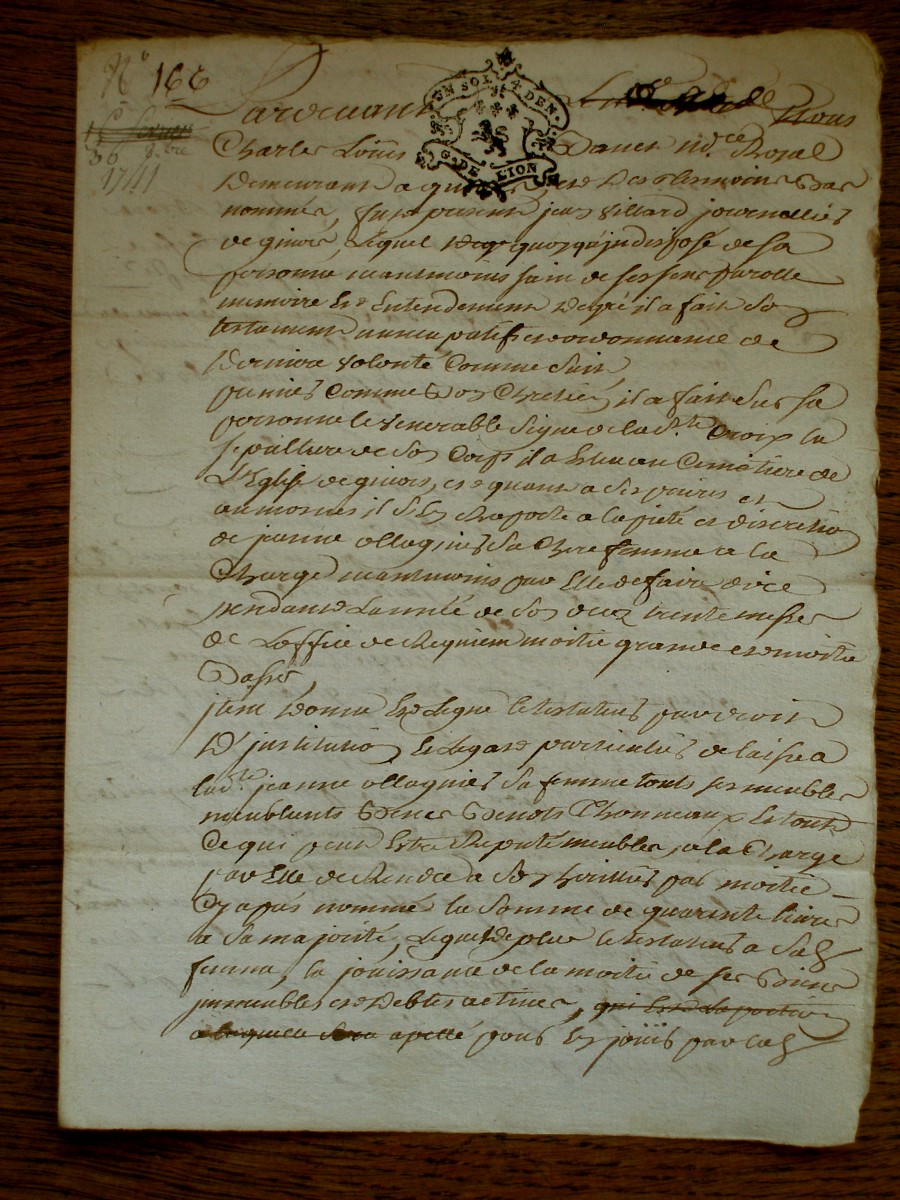 N° 166
30 8bre
1741
UN SOL 4 DEN.
G. DE LION
Pardevant Nous
Charles Loüis Danen No.re Royal
Demeurant a et Des Tesmoins Bas
nommés, fut present jean Villard journallier
de ginois, Lequel de gré quoyqu'jndisposé de sa
personne neantmoins sain de ses sens parolle
memoire Et Entendement De gré il a fait son
testament nuncupatif et ordonnance de
Derniere Volonté Comme Suit,
premier Comme bon Chretien il a fait Sur sa
personne le Venerable Signe de la S.te Croix la
sepulture de Son Corps il a Esleu au Cemetiere de
L'Eglise de ginois, et quant a Ses prieres et
aumosnes il S'En Raporte a la pieté et discretion
de jeanne ollagnier Sa Chere femme a la
Charge neantmoins par Elle de faire dire
pendant L'année de Son deuz trente messes
de L'office de Requiem moitié grande et moitié
Basse,
jtem Donne Et Legue le testateur par droit
D'jnstitution, et Legat particulier delaisse a
lad.te jeanne ollagnier Sa femme touts ses meubles
meublants Bene Benots Thonneaux Le tout
Ce qui peut Estre Reputé meubles, a la Charge
par Elle de Rendre a Son heritier par moitié
Cy apres nommé la Somme de quarente livres
a Sa majorité, Legue de plus le testateur a Sad.
femme, la jouissance de la moitié de ses Biens
jmmeubles et Debtes actives, qui Est La portion
a laquelle Sera apellé pour En joüir par lad.